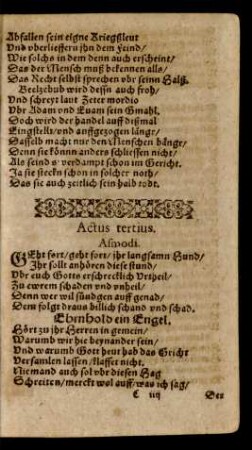 Abfallen sein eigne Kriegßleut
Vnd vberlieffern jhn dem Feind/
Wie solchs in dem denn auch erscheint/
Das der Mensch muß bekennen alls/
Das Recht selbst sprechen vbr seinn Halß.
Beelzebub wird dessn auch froh/
Vnd schreyt laut Zeter mordio
Vbr Adam vnd Euam sein Gmahl.
Doch wird der handel auff dißmal
Eingstellt/ vnd auffgezogen länger/
Dasselb macht nur den Menschen bänger/
Denn sie könnn anders schliessen nicht/
Als seind s' verdampt schon im Gericht.
Ja sie steckn schon in solcher noth/
Das sie auch zeitlich sein halb todt.
Actus tertius.
Asmodi.
GEht fort/ geht fort/ jhr langsamn Hund/
Jhr sollt anhören diese stund/
Vbr euch Gotts erschrecklich Vrtheil/
Zu ewrem schaden vnd vnheil/
Denn wer wil sündgen auff genad/
Dem folgt draus billich schand vnd schad.
Ebenhold ein Engel.
Hört zu jhr Herren in gemein/
Warumb wir hie beynander sein/
Vnd warumb Gott heut hab das Gricht
Versamlen lassen/ klaffet nicht.
Niemand auch sol vbr diesen Hag
Schreiten/ merckt wol auff/ was ich sag/
C iiij Der